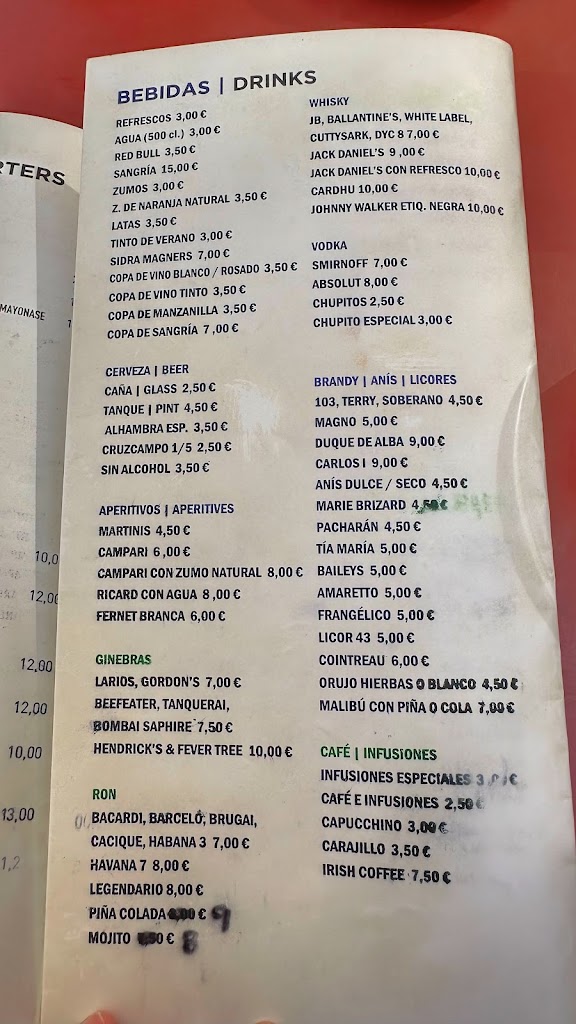 RTERS
MAYONASE
12,00
12,00
10,00
13,00
BEBIDAS | DRINKS
REFRESCOS 3,00 €
AGUA (500 cl.) 3,00 €
RED BULL 3,50 €
SANGRÍA 15,00 €
ZUMOS 3,00 €
Z. DE NARANJA NATURAL 3,50 €
LATAS 3,50 €
TINTO DE VERANO 3,00 €
SIDRA MAGNERS 7,00 €
COPA DE VINO BLANCO / ROSADO 3,50 €
COPA DE VINO TINTO 3,50 €
COPA DE MANZANILLA 3,50 €
COPA DE SANGRÍA 7 ,00 €
CERVEZA | BEER
CAÑA | GLASS 2,50 €
TANQUE | PINT 4,50 €
ALHAMBRA ESP. 3,50 €
CRUZCAMPO 1/5 2,50 €
SIN ALCOHOL 3,50 €
APERITIVOS | APERITIVES
MARTINIS 4,50 €
CAMPARI 6 ,00 €
CAMPARI CON ZUMO NATURAL 8,00 €
RICARD CON AGUA 8 ,00 €
FERNET BRANCA 6,00 €
GINEBRAS
LARIOS, GORDON'S 7,00 €
BEEFEATER, TANQUERAI,
BOMBAI SAPHIRE 7,50 €
HENDRICK'S & FEVER TREE 10,00 €
RON
BACARDI, BARCELÓ, BRUGAI,
CACIQUE, HABANA 3 7,00 €
HAVANA 7 8,00 €
LEGENDARIO 8,00 €
PIÑA COLADA € 9
MOJITO € 8
WHISKY
JB, BALLANTINE'S, WHITE LABEL,
CUTTYSARK, DYC 8 7,00 €
JACK DANIEL'S 9 ,00 €
JACK DANIEL'S CON REFRESCO 10,00 €
CARDHU 10,00 €
JOHNNY WALKER ETIQ. NEGRA 10,00 €
VODKA
SMIRNOFF 7,00 €
ABSOLUT 8,00 €
CHUPITOS 2,50 €
CHUPITO ESPECIAL 3,00 €
BRANDY | ANÍS | LICORES
103, TERRY, SOBERANO 4,50 €
MAGNO 5,00 €
DUQUE DE ALBA 9,00 €
CARLOS I 9,00 €
ANÍS DULCE / SECO 4,50 €
MARIE BRIZARD 4,50 €
PACHARÁN 4,50 €
TÍA MARÍA 5,00 €
BAILEYS 5,00 €
AMARETTO 5,00 €
FRANGÉLICO 5,00 €
LICOR 43 5,00 €
COINTREAU 6,00 €
ORUJO HIERBAS O BLANCO 4,50 €
MALIBÚ CON PIÑA O COLA 7,00 €
CAFÉ | INFUSIONES
INFUSIONES ESPECIALES
CAFÉ E INFUSIONES 2,50 €
CAPUCCHINO 3,00 €
CARAJILLO 3,50 €
IRISH COFFEE 7,50 €